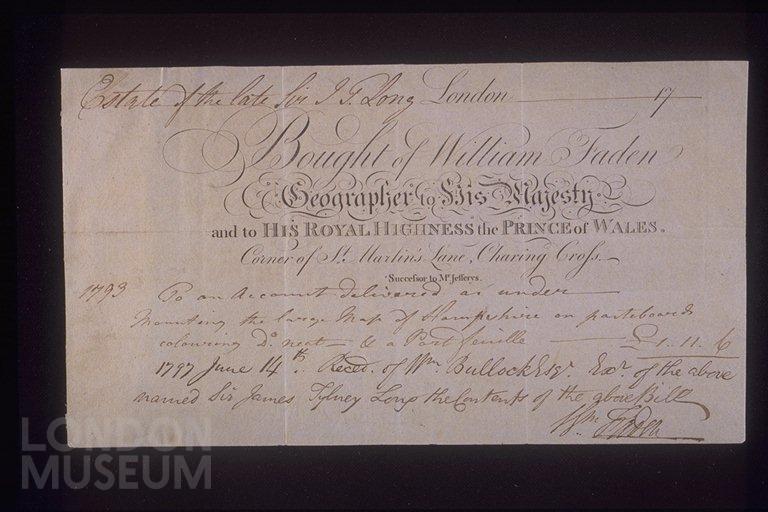 Estate of the late Sir J T. Long London 17
Bought of William Faden
Geographer to His Majesty
and to HIS ROYAL HIGHNESS the PRINCE of WALES.
Corner of St. Martin's Lane, Charing Cross.
Successor to Mr. Jefferys.
1793 To an Account delivered as under
Mounting the large Map of Hampshire on pasteboards
colouring Do. neat & a Port feuille £1. 11. 6
1797 June 14th. Recd. of Wm. Bullock Esqr. Exr. of the above
named Sir James Tylney Long the Contents of the above Bill
Wm. Faden
LONDON
MUSEUM